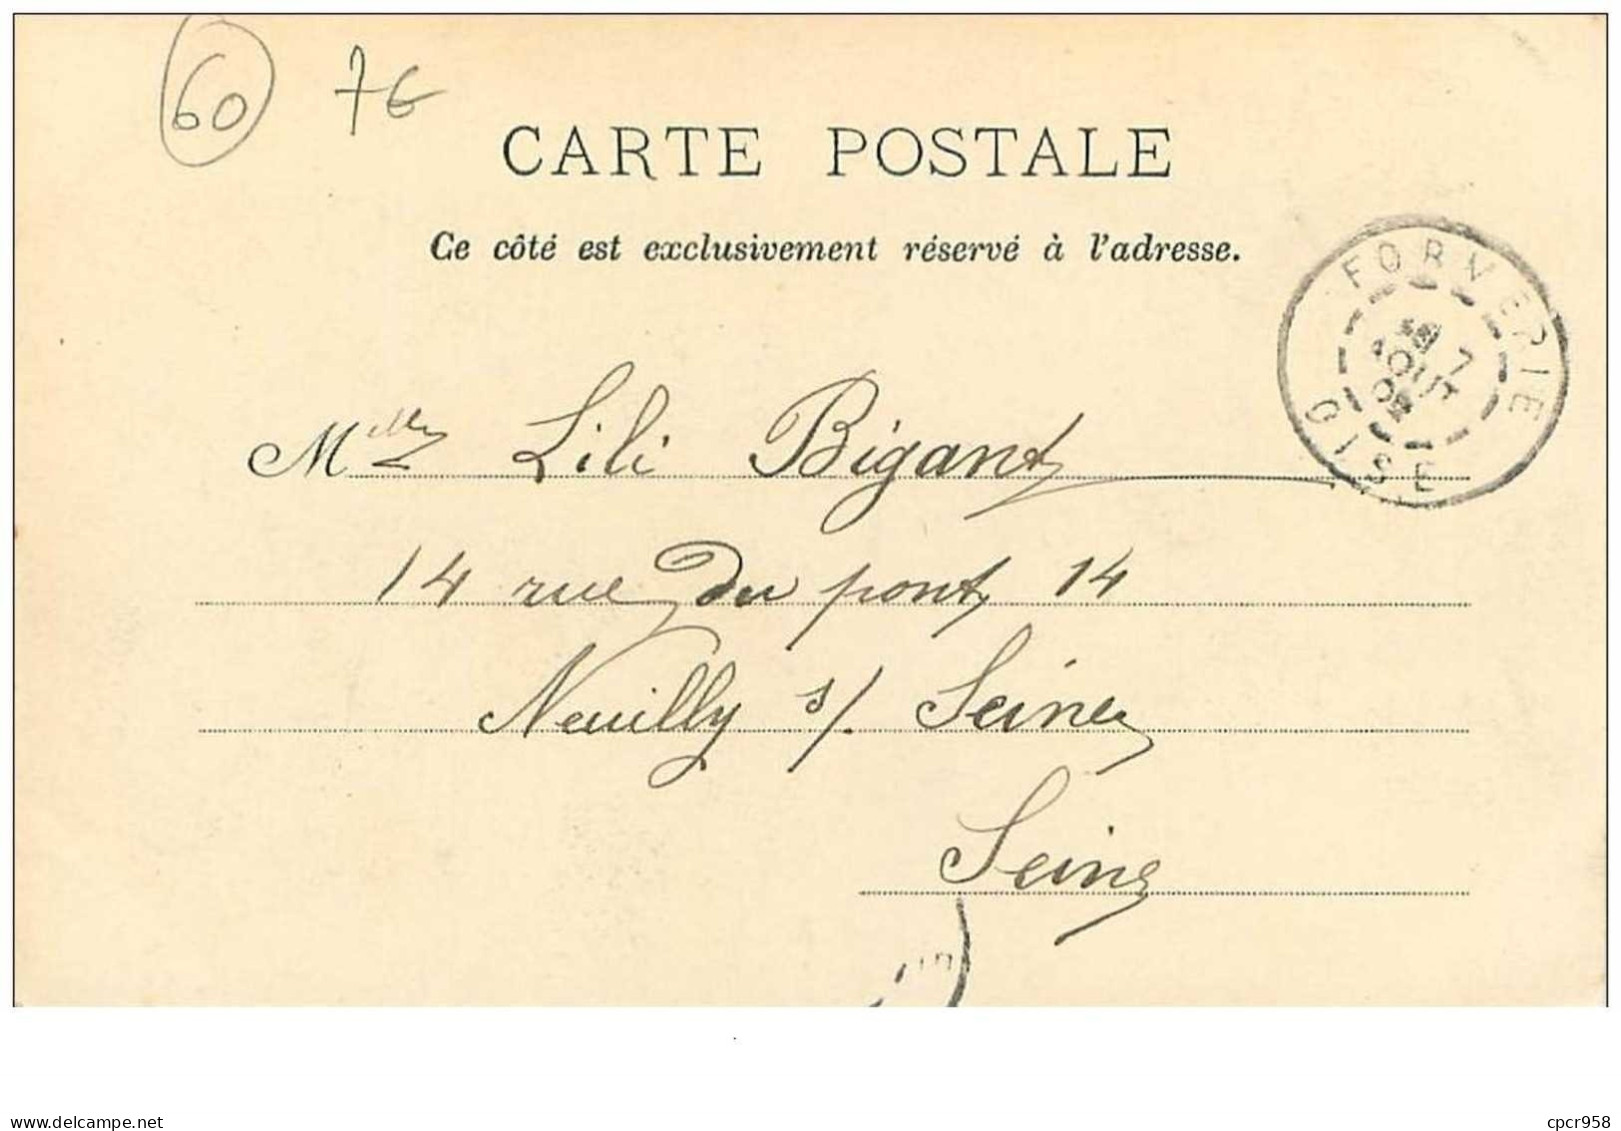 60 7€
CARTE POSTALE
Ce côté est exclusivement réservé à l'adresse.
FORMERIE
7
AOUT
OISE
Melle Lili Bigant
14 rue du pont 14
Neuilly s/. Seine
Seine
delcampe.net
cpcr958